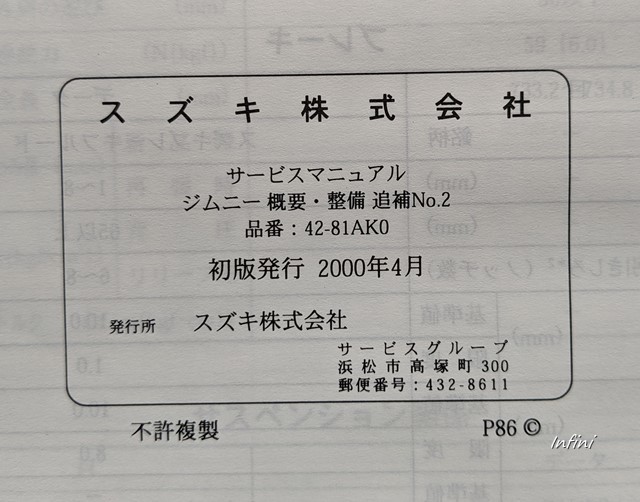 スズキ株式会社
サービスマニュアル
ジムニー 概要・整備 追補No.2
品番：42-81AK0
初版発行 2000年4月
発行所 スズキ株式会社
サービスグループ
浜松市高塚町300
郵便番号：432-8611
不許複製 P86 ©
Infini